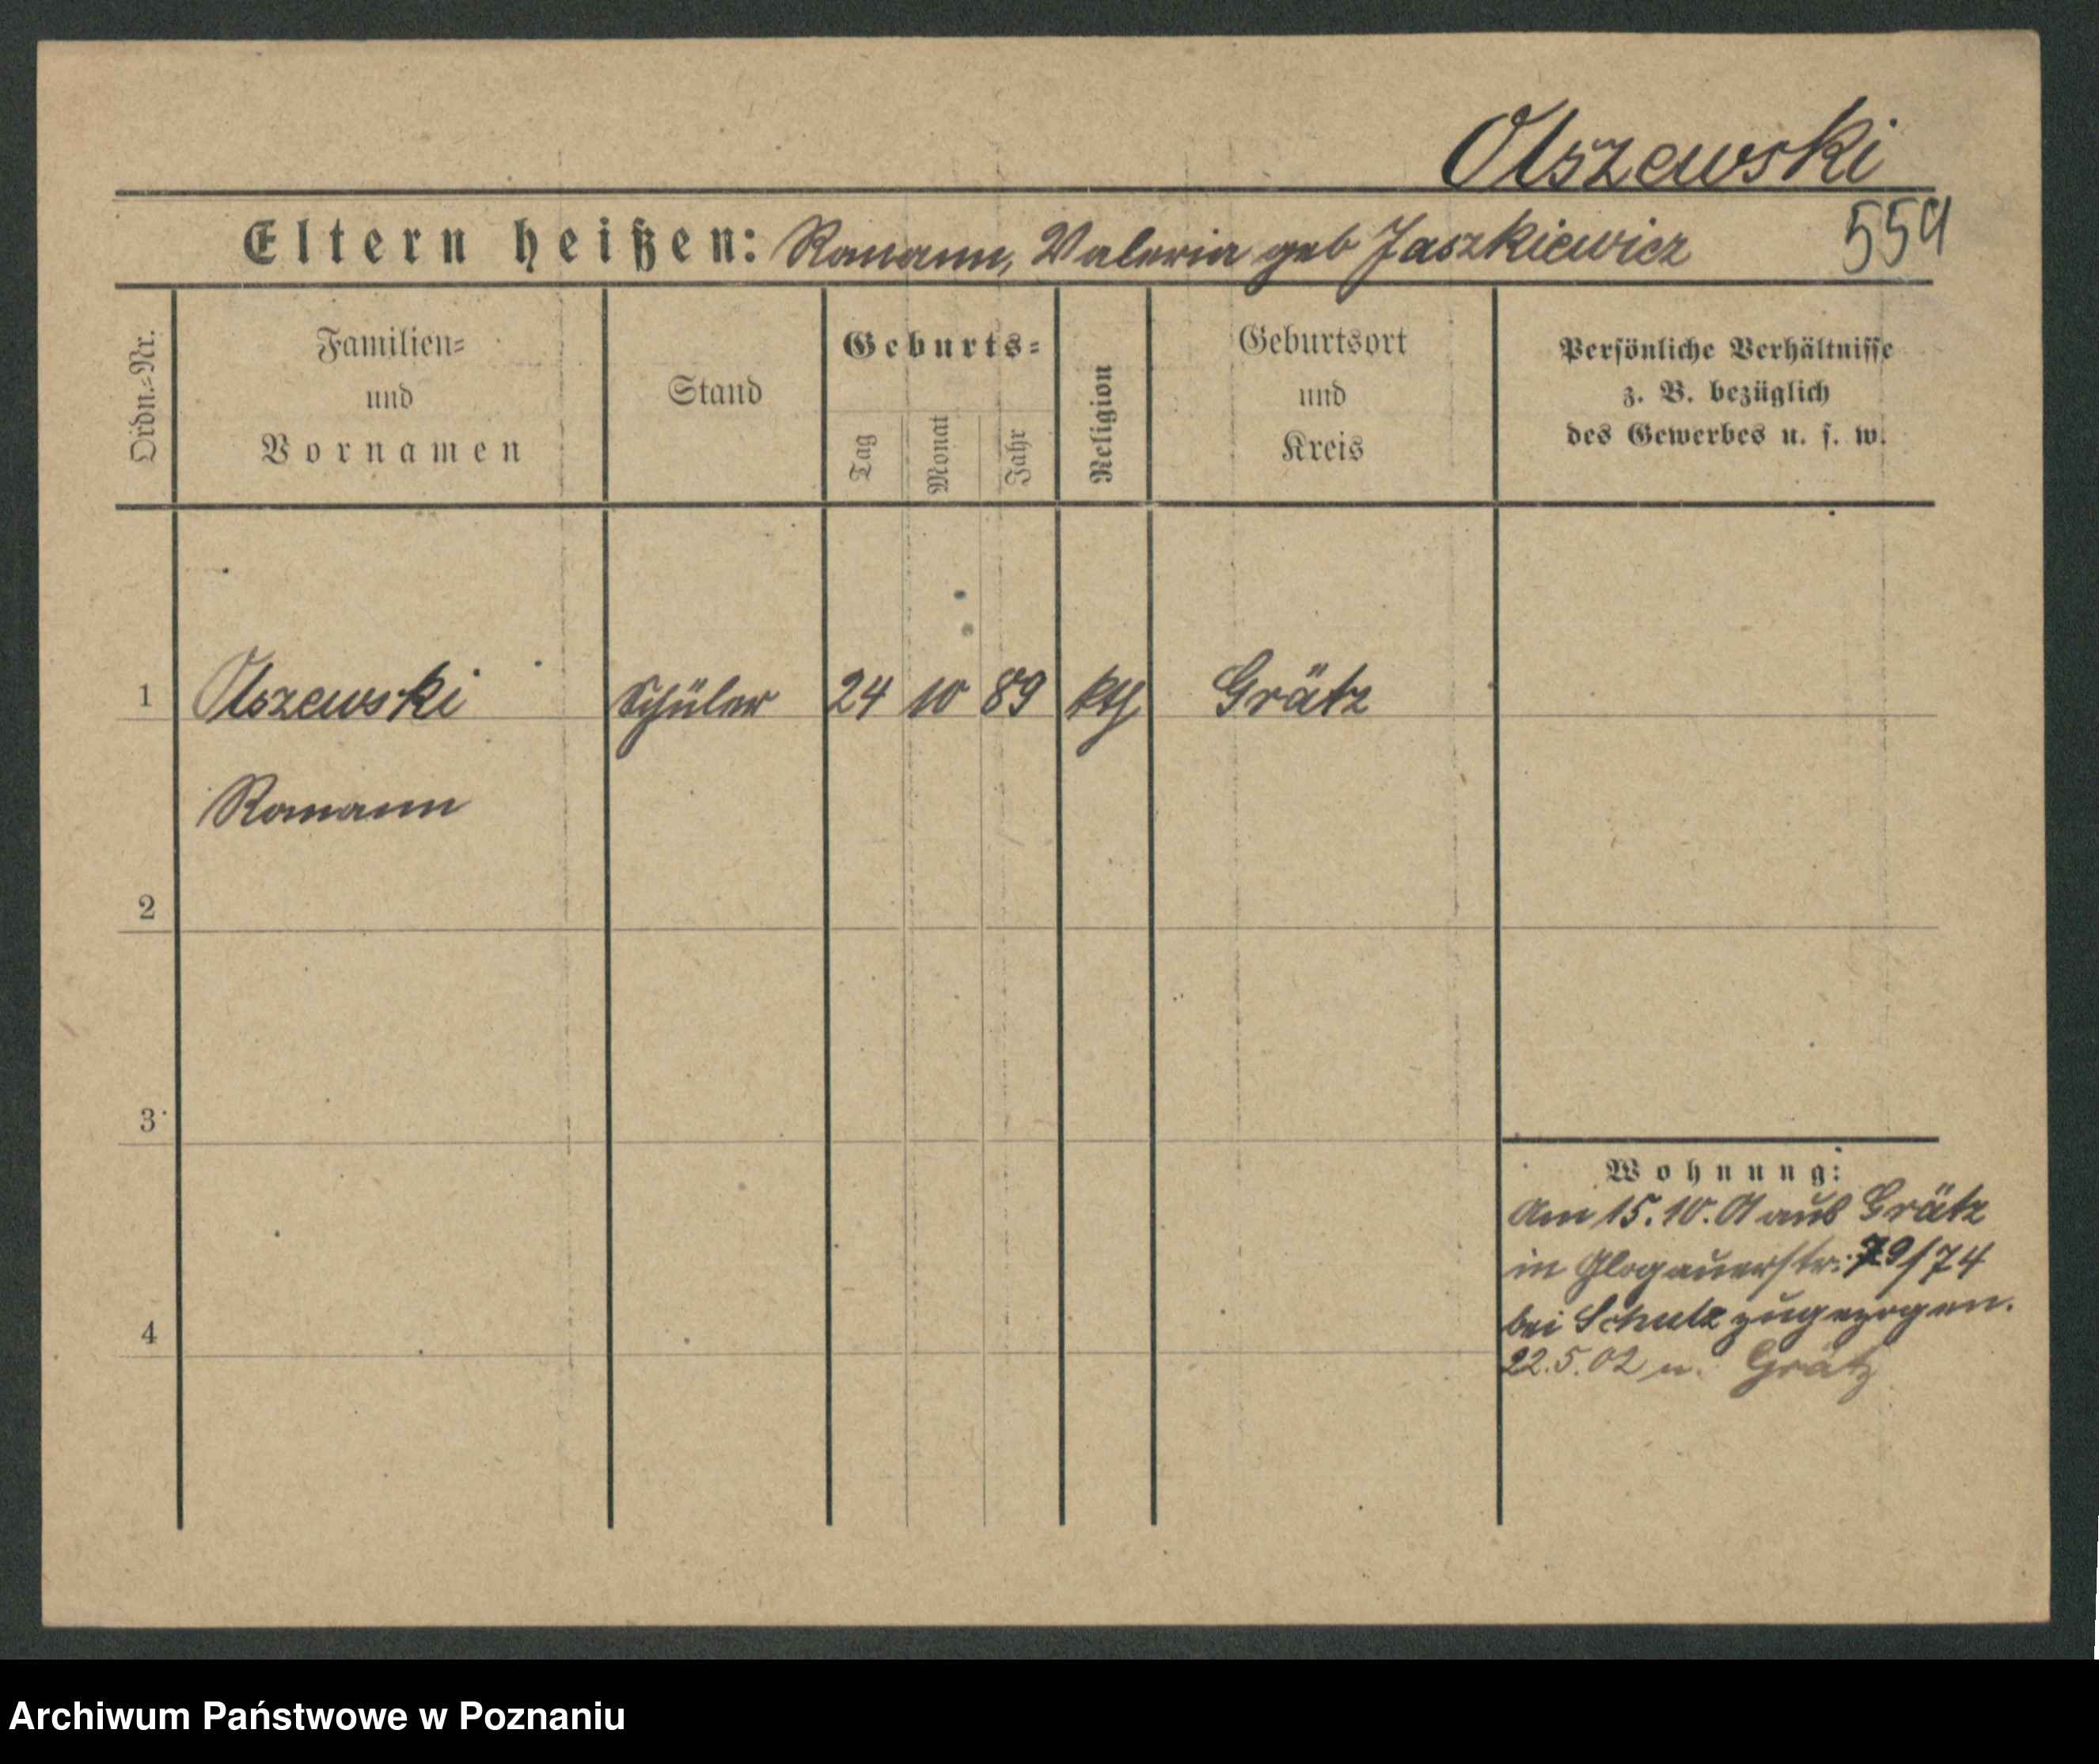 Olszewski
Eltern heißen: Romann, Valeria geb Jaszkiewicz 559
Ordn.-Nr.
Familien-
und
Vornamen
Stand
Geburts-
Tag
Monat
Jahr
Religion
Geburtsort
und
Kreis
Persönliche Verhältnisse
z. B. bezüglich
des Gewerbes u. s. w.
1 Olszewski Schüler 24 10 89 kth Grätz
Romann
2
3
Wohnung:
Am 15.10.01 aus Grätz
in Glogauerstr. 73/74
bei Schulz zugezogen.
4
22.5.02 n. Grätz
Archiwum Państwowe w Poznaniu